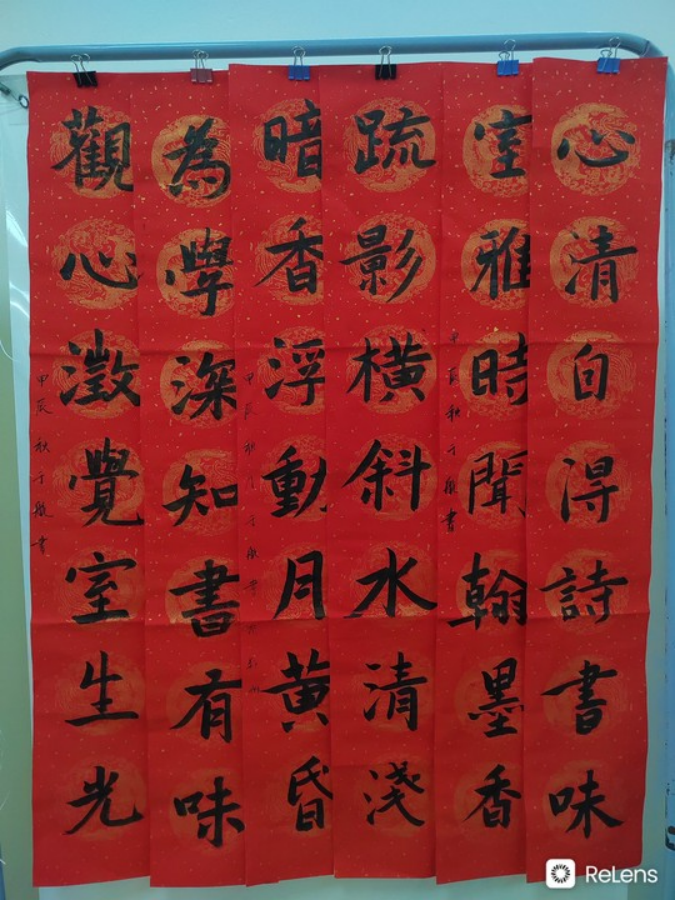 心清自得詩書味
室雅時聞翰墨香
甲辰秋于書
疏影橫斜水清淺
暗香浮動月黃昏
甲辰秋
為學深知書有味
觀心澂覺室生光
甲辰秋于書
ReLens